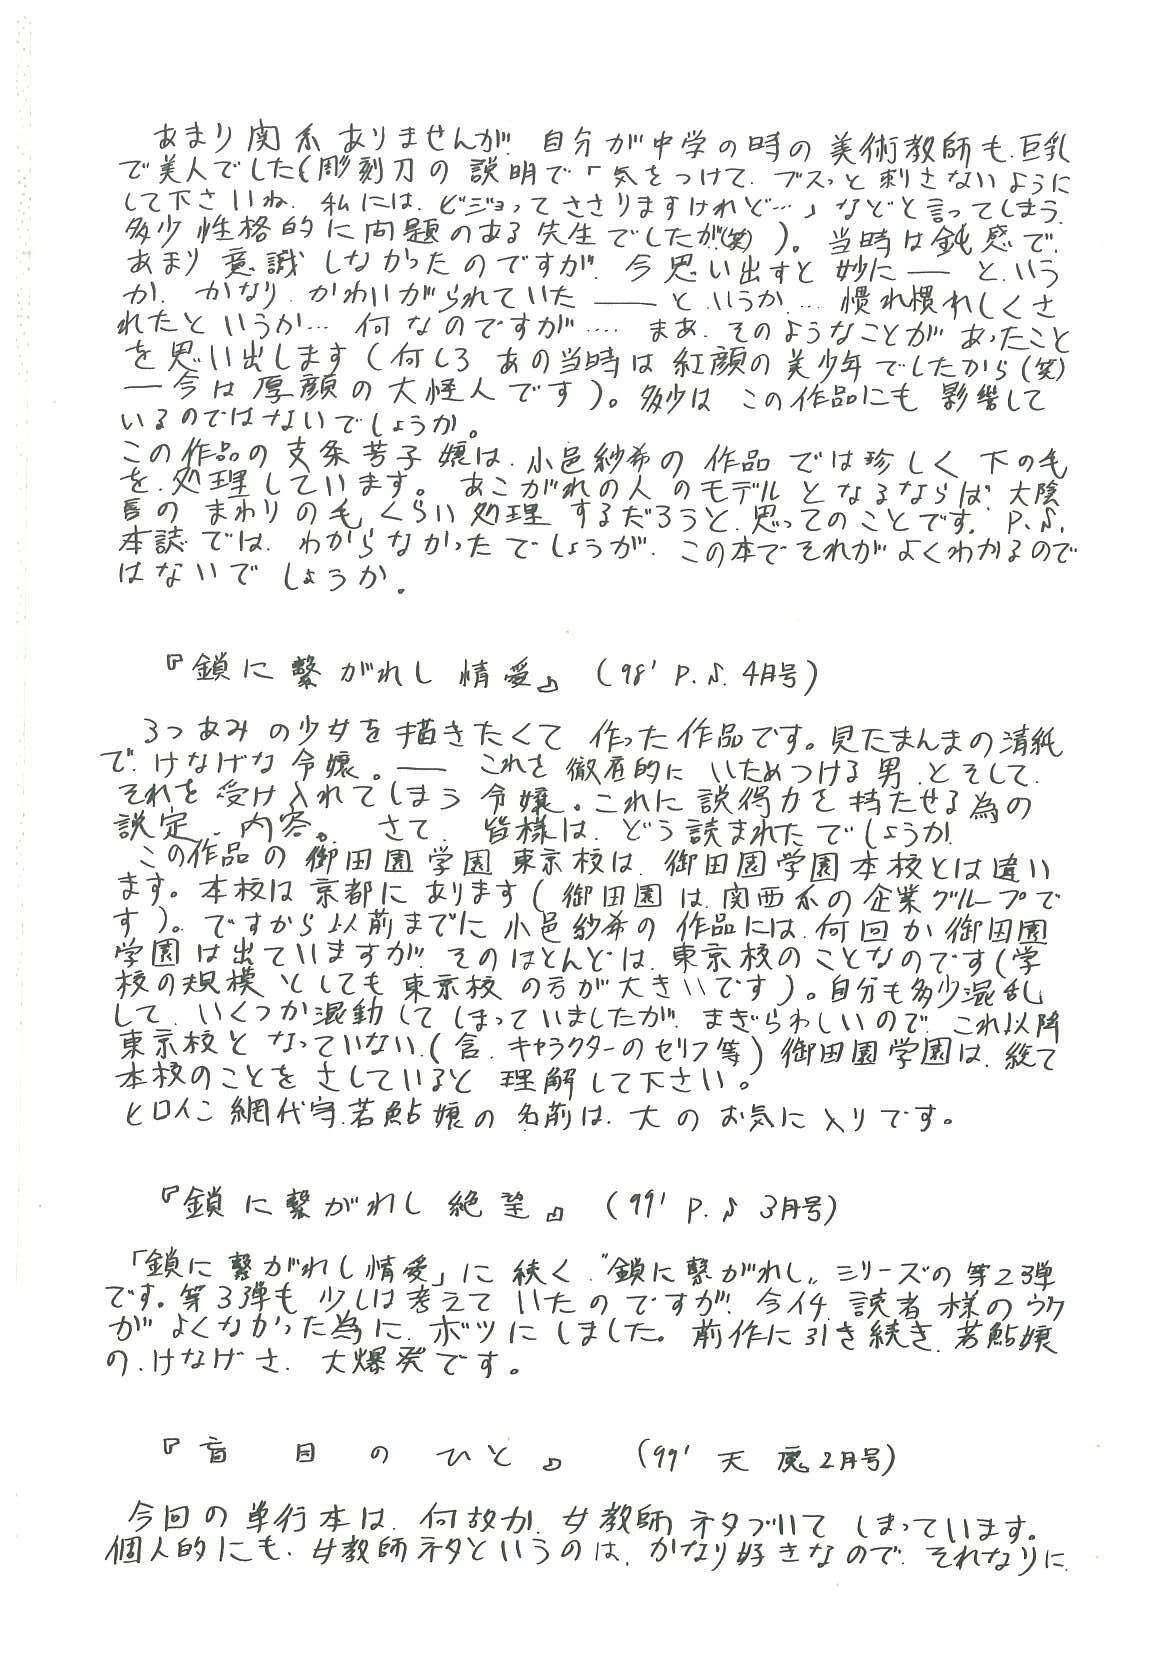 あまり関係ありませんが、自分が中学の時の美術教師も、巨乳
で美人でした(彫刻刀の説明で「気をつけて、ブスっと刺さないように
して下さいね。私には、ビジョってささりますけれど…」などと言ってしまう、
多少性格的に問題のある先生でしたが(笑))。当時は鈍感で、
あまり意識しなかったのですが、今思い出すと妙に――と、いう
か、かなり、かわいがられていた――と、いうか…慣れ慣れしくさ
れたというか…何なのですが‥‥まあ、そのようなことがあったこと
を思い出します(何しろあの当時は紅顔の美少年でしたから(笑)
―今は厚顔の大怪人です)。多少は この作品にも影響して
いるのではないでしょうか。
この作品の支条芳子嬢は、小邑紗希の作品では珍しく下の毛
を、処理しています。あこがれの人のモデルとなるならば、大陰
唇のまわりの毛くらい処理するだろうと、思ってのことです。P.S.
本誌では、わからなかったでしょうが、この本でそれがよくわかるので
はないでしょうか。
『鎖に繋がれし情愛』(98' P.S.4月号)
3つあみの少女を描きたくて作った作品です。見たまんまの清純
で、けなげな令嬢。――これを徹底的にいためつける男、とそして、
それを受け入れてしまう令嬢。これに説得力を持たせる為の
設定、内容。さて、皆様は、どう読まれたでしょうか。
この作品の御田園学園東京校は、御田園学園本校とは違い
ます。本校は京都にあります(御田園は、関西系の企業グループで
す)。ですから以前までに小邑紗希の作品には、何回か御田園
学園は出ていますが、そのほとんどは、東京校のことなのです(学
校の規模としても東京校の方が大きいです)。自分も多少混乱
して、いくつか混動してしまっていましたが、まぎらわしいので、これ以降
東京校となっていない、(含、キャラクターのセリフ等)御田園学園は、総て
本校のことをさしていると理解して下さい。
ヒロイン網代守若鮎嬢の名前は、大のお気に入りです。
『鎖に繋がれし絶望』(99' P.S 3月号)
「鎖に繋がれし情愛」に続く、"鎖に繋がれし"シリーズの第2弾
です。第3弾も少しは考えていたのですが、今イチ、読者様のウケ
がよくなかった為に、ボツにしました。前作に引き続き、若鮎嬢
の、けなげさ、大爆発です。
『盲目のひと』(99' 天魔2月号)
今回の単行本は、何故か、女教師ネタづいてしまっています。
個人的にも、女教師ネタというのは、かなり好きなので、それなりに、